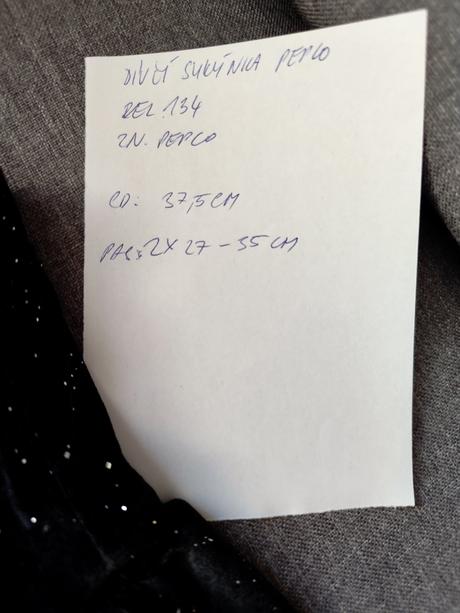 DÍVČÍ SUKÝNKA PEPCO
VEL. 134
ZN. PEPCO
CD: 37,5CM
PAS: 2X 27 - 35 CM